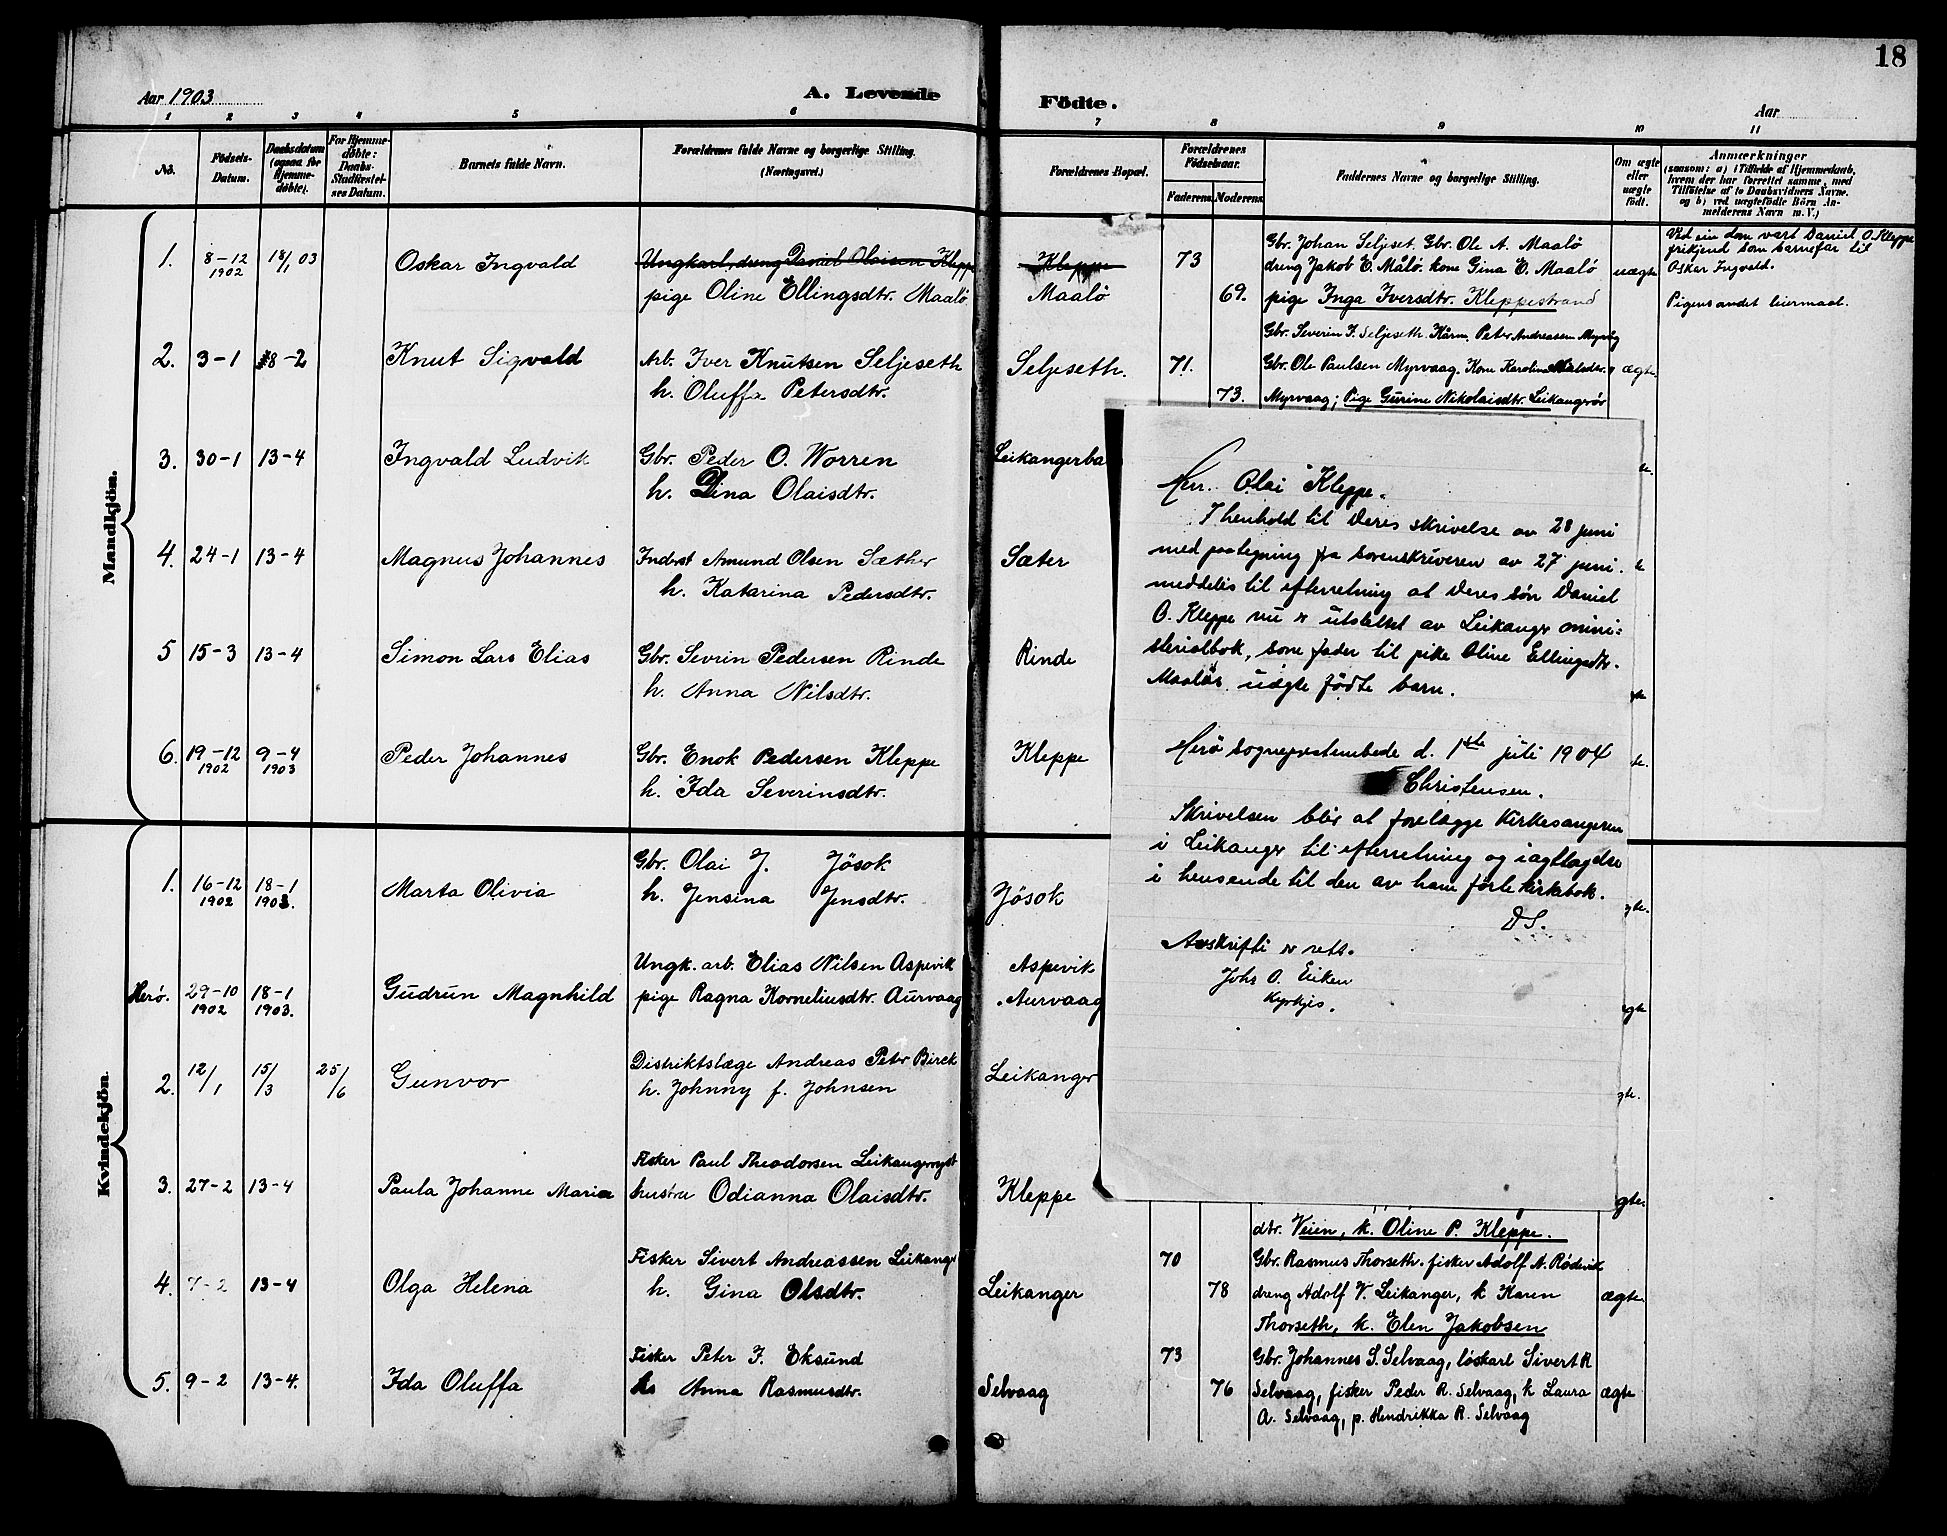 18
Aar 1903
A. Levende
Födte.
Aar
1 2 3 4 5 6 7 8 9 10 11
No.
Födsels-Datum.
Daabsdatum (ogsaa for Hjemme-döbte).
For Hjemme-döbte: Daabs-Stadfæstel-ses Datum.
Barnets fulde Navn.
Forældrenes fulde Navne og borgerlige Stilling.
(Næringsvei.)
Forældrenes Bopæl.
Forældrenes Födselsaar.
Faderens. Moderens.
Faddernes Navne og borgerlige Stilling.
Om ægte eller uægte födt.
Anmærkninger
(saasom: a) i Tilfælde af Hjemmedaab,
hvem der har forrettet samme, med
Tilföielse af to Daabsvidners Navne.
og b) ved uægtefödte Börn An-
melderens Navn m. V.)
Mandkjön.
1. 8-12 1902 18/1 03 Oskar Ingvald Ungkarl, dreng Daniel Olaisen Kleppe Kleppe 73 Gbr. Johan Seljset. Gbr. Ole A. Maalö
dreng Jakob E. Målö. kone Gina E. Maalö uægte
pige Oline Ellingsdtr. Maalö Maalö 69. pige Inga Iversdtr. Kleppestrand
Ved ein dom vart Daniel O. Kleppe
frikjend som barnefar til
Oskar Ingvald.
Pigens andet leiermaal.
Gbr. Severin I. Seljeseth. Kårm. Peter Andreasen Myrvåg
2. 3-1 8-2 Knut Sigvald Arb. Iver Knutsen Seljeseth Seljeseth. 71. Gbr. Ole Paulsen Myrvaag. Kone Karoline ægte.
h. Oluffa Petersdtr. 73. Myrvaag; Pige Gurine Nikolaisdtr. Leikangrör
3. 30-1 13-4 Ingvald Ludvik Gbr. Peder O. Worren Leikangerba
h. Dina Olaisdtr.
4. 24-1 13-4 Magnus Johannes Inderst Amund Olsen Sæther Sæter
h. Katarina Pedersdtr.
5 15-3 13-4 Simon Lars Elias Gbr. Sevrin Pedersen Rinde Rinde
h. Anna Nilsdtr.
6. 19-12 1902 9-4 1903 Peder Johannes Gbr. Enok Pedersen Kleppe Kleppe
h. Ida Severinsdtr.
Kvindekjön.
1. 16-12 1902 18-1 1903. Marta Olivia Gbr. Olai J. Jösok
h. Jensina Jensdtr. Jösok
Ungk. arb. Elias Nilsen Aspevik Aspevik
Herö. 29-10 1902 18-1 1903. Gudrun Magnhild pige Ragna Korneliusdtr. Aurvaag Aurvaag
2. 12/1 15/3 25/6 Gunvor Distriktslæge Andreas Peter Birck Leikanger
h. Johnny f. Johnsen
Fisker Paul Theodorsen
3. 27-2 13-4 Paula Johanne Marie hustru Odianna Olaisdtr. Kleppe
dtr. Veien, k. Oline P. Kleppe.
Fisker Sivert Andreassen Leikanger 70 Gbr. Rasmus Thorseth. fisker Adolf A. Rødevik
4. 7-2 13-4 Olga Helena h. Gina Olsdtr. Leikanger 78 dreng Adolf V. Leikanger, k Karen ægte
Thorseth, k. Elen Jakobsen
Fisker Peter I. Eksund 73 Gbr. Johannes S. Selvaag, löskarl Sivert R
5. 9-2 13-4. Ida Oluffa Anna Rasmusdtr. Selvaag 76 Selvaag, fisker Peder R. Selvaag, k Laura ægte
A. Selvaag, p. Hendrikka R. Selvaag
Herr. Olai Kleppe.
I henhold til Deres skrivelse av 28 juni
med paategning fra sorenskriveren av 27 juni.
meddeles til efterretning at Deres sön Daniel
O. Kleppe nu er utslettet av Leikanger mini=
sterialbok, som fader til pike Oline Ellingsdtr.
Maalös uægte födte barn.
Herö sogneprestembede d. 1ste juli 1904
Christensen.
Skrivelsen blir at forelægge Kirkesangeren
i Leikanger til efterretning og iagttagelse
i henseende til den av ham förte kirkebok.
D.S.
Avskrifti er rett.
Johs O. Eiken
Kyrkjes.